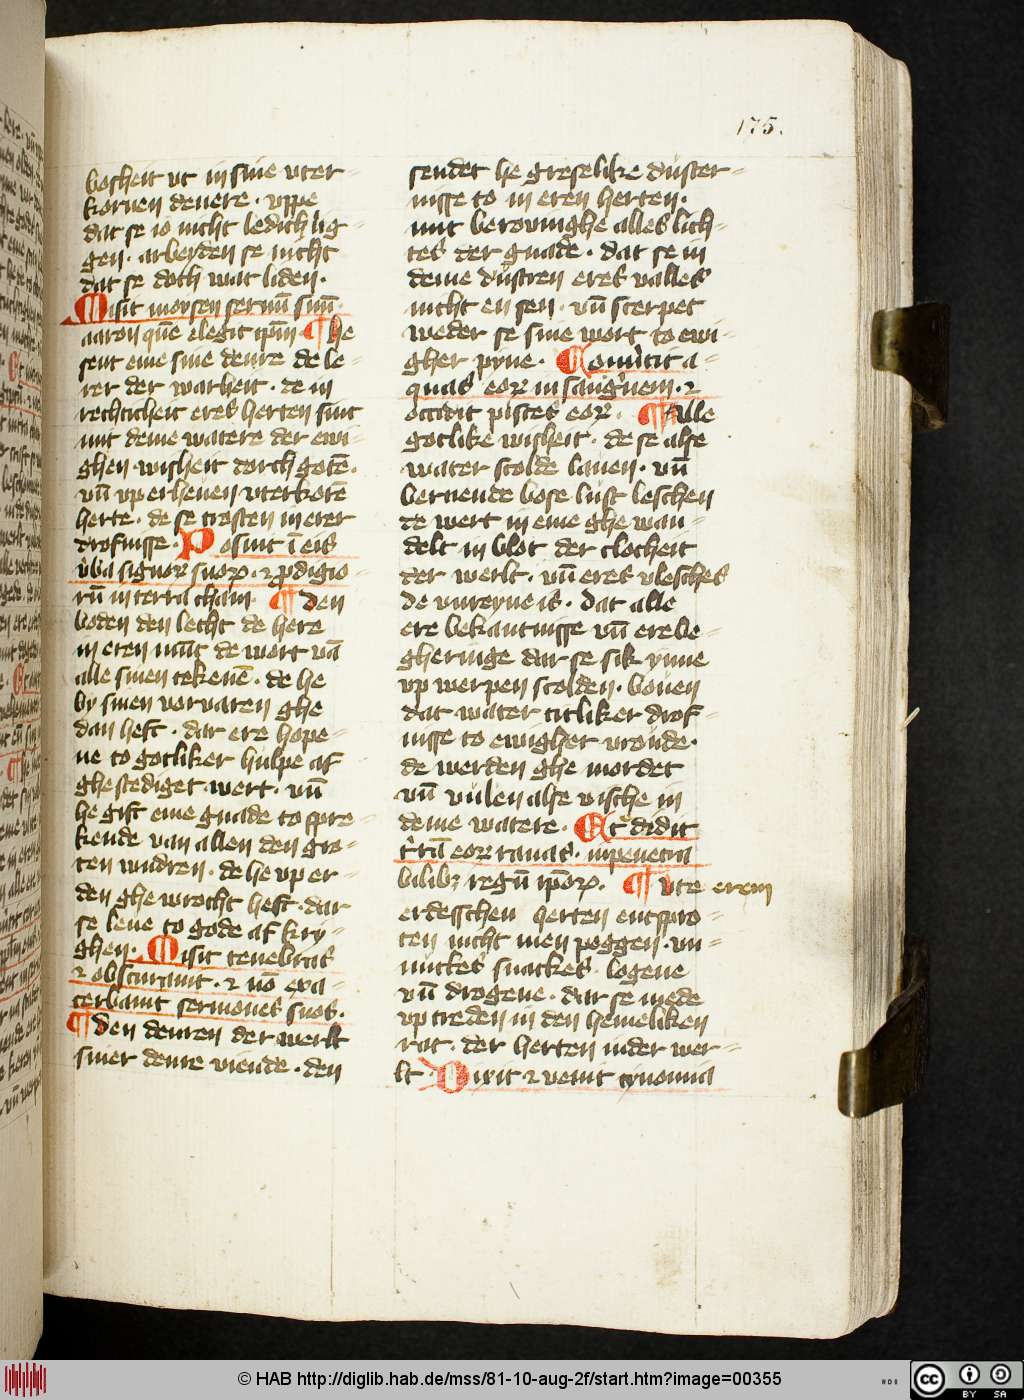 175.
bosheit vt in sine vter-
koruen denere. vppe
dat se io nicht ledich lig-
gen. arbeyden se nicht
dat se doch wat liden.
Misit moysen seruū suū.
aaron quē elegit ip̄m ¶ he
sent eine sine denre de le-
rer der warheit. de in
rechticheit eres herten sint
mit deme watere der ewi-
ghen wisheit dorch gotē.
vn̄ vp erheuen vterkorē
herte. de se trosten in erer
drofnisse. Posuit ī eis
v̄ba signoꝝ suoꝝ. ⁊ ꝓdigio-
rū in terra cham. ¶ den
boden den lecht de here
in eren mūt de wort vā
alle sinen tekenē. de he
by sinen vorvaren ghe
dan heft. dar ere hope-
ne to gotliker hulpe af
ghestediget wert. vn̄
he gift eine gnade to spre-
kende van allen den gro-
ten wndren. de he vp er-
den ghe wrocht heft. dar
se leue to gode af kry-
ghen. Misit tenebras
⁊ obscurauit. ⁊ nō exa-
cerbauit sermones suos.
¶ Den denren der werlt
siner deme viende. den
sendet he greselike duster-
nisse to in eren herten.
mit berovinghe alles lich-
tes der gnade. dat se in
deme dustren eres valles
nicht en sen. vn̄ scerpet
weder se sine wort to ewi-
gher pyne. Conu̇tit a-
quas eoꝝ in sangu̇inem. ⁊
occidit pisces eoꝝ. ¶ Alle
gotlike wisheit. de se alse
water scolde lauen. vn̄
bernende bose lust leschen
de wert in eine ghe wan-
delt in blot der clocheit
der werlt. vn̄ eres vlesches
de vnreyne is. dat alle
ere bekantnisse vn̄ ere be-
gheringe dar se sik ynne
vp werpen scolden. bouen
dat water titliker drof-
nisse to ewigher vroude.
de werden ghe mordet
vn̄ vulen alse vische in
deme watere. Et didit
t̄rā eoꝝ ranas. in penetra
bilibꝫ regū ip̄oꝝ. ¶ vte eren
erdesschen herten entspro-
ten nicht men poggen. vn-
nuttes snackes. logene
vn̄ drogene. dar se mede
vp treden in den hemeliken
rat. der herten in der wer-
lt. Dixit ⁊ venit cynomia
© HAB http://diglib.hab.de/mss/81-10-aug-2f/start.htm?image=00355
HAB
cc
BY SA